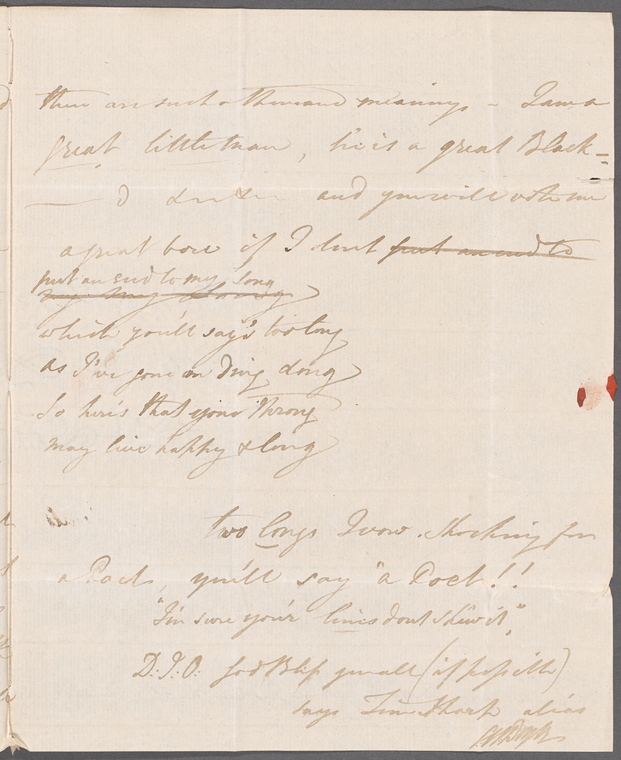 there are such a thousand meanings – I am a
great little man, he is a great Black=
and you will vote me
a great bore if I dont put an end to
put an end to my song
my my song
which you'll say's too long
as I've gone on ding dong
So here's that your throng
may live happy & long
two longs I vow. Shocking for
a Poet, you'll say "a Poet!!
"I'm sure your lines dont shew it",
D.I.O. God Bless you all (if possible)
says Tim Sharp alias